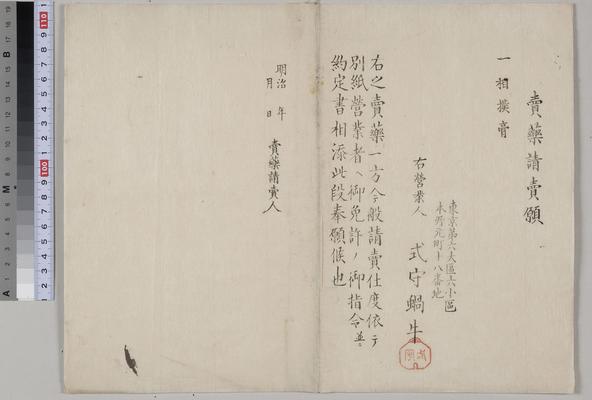 賣藥請賣願
一相撲膏
東京第六大區六小區
本所元町十八番地
右營業人 式守蝸牛
右之賣藥一方今般請賣仕度依テ
別紙營業者ヘ御免許ノ御指令並
約定書相添此段奉願候也
明治 年
月 日
賣藥請賣人